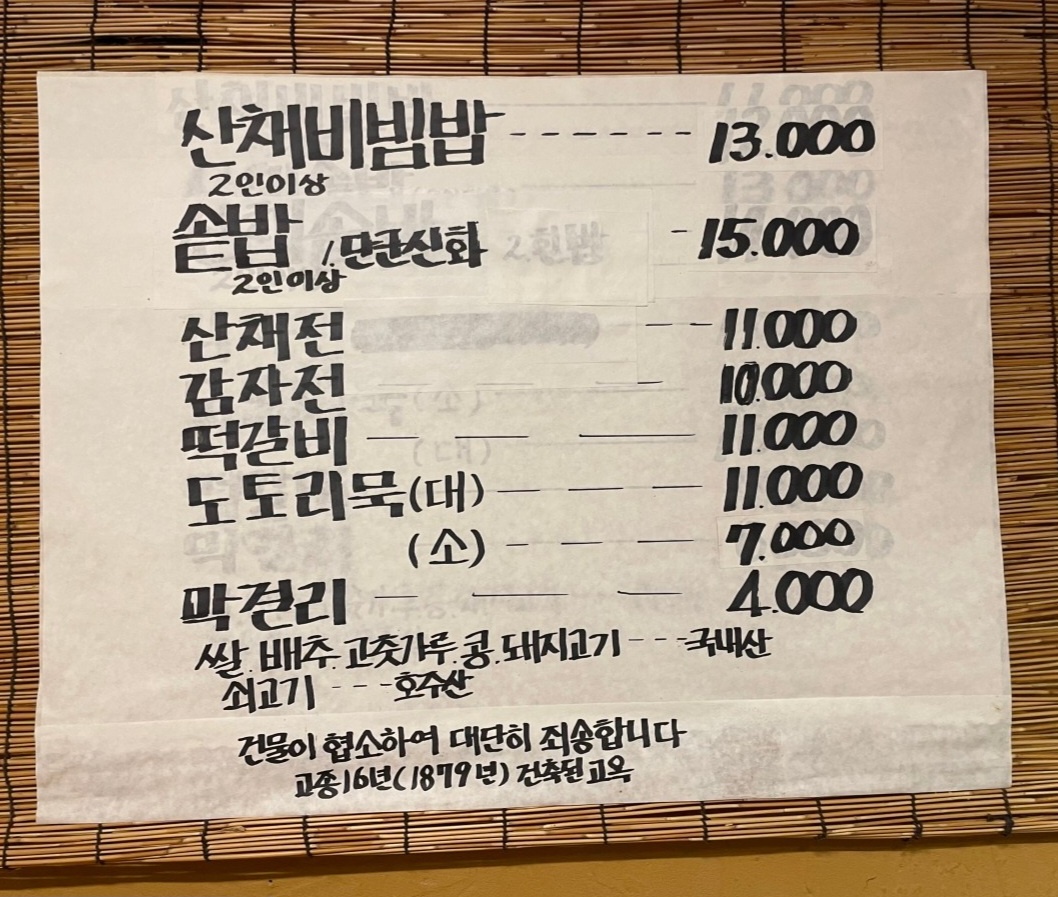 산채비빔밥 ------ 13.000
2인이상
솥밥 1.단군신화 - 15.000
2인이상
산채전 --- 11.000
감자전 --- 10.000
떡갈비 --- 11.000
도토리묵(대) --- 11.000
(소) --- 7.000
막걸리 --- 4.000
쌀.배추.고춧가루.콩.돼지고기 --- 국내산
쇠고기 --- 호주산
건물이 협소하여 대단히 죄송합니다
고종16년(1879년) 건축된 고옥